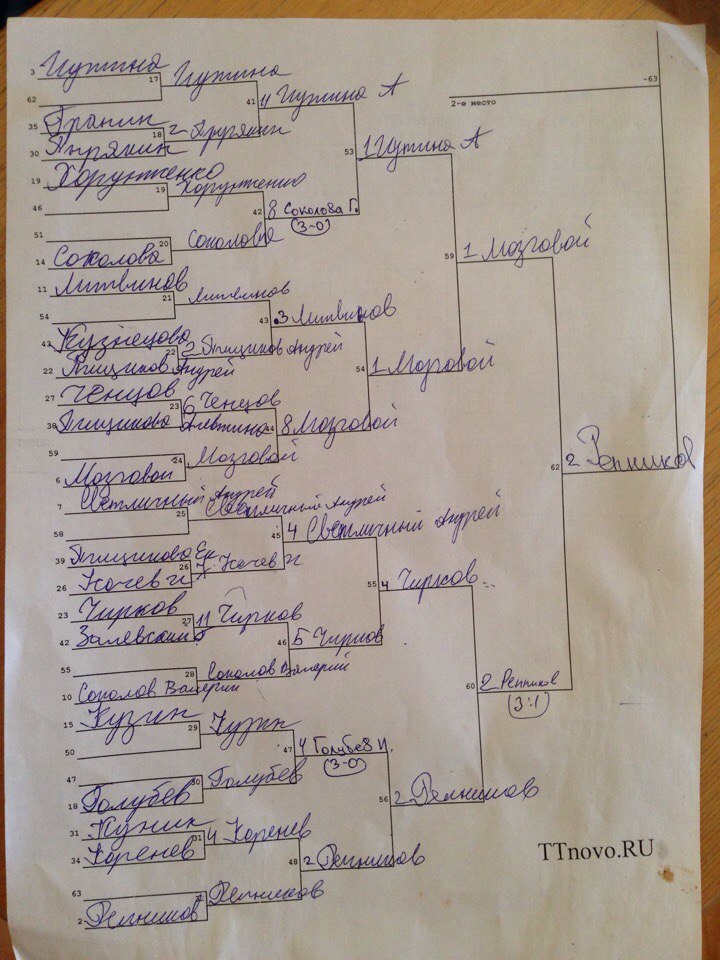 3 Путина
17 Путина
62
41 4 Путина А
35 Гранин
18 2
30
53 1 Путина А
19 Хорунженко
19 Хорунженко
46
42 8 Соколова Г.
(3-0)
51
20 Соколова
14 Соколова
59 1 Мозговой
11 Литвинов
21 Литвинов
54
43 3 Литвинов
43 Кузнецова
22 2 Пищиков Андрей
22 Пищиков Андрей
54 1 Мозговой
27 Ченцов
23 6 Ченцов
38 Пищикова
44 8 Мозговой
59
24 Мозговой
6 Мозговой
62 2 Репников
7 Светличный Андрей
25 Светличный Андрей
58
45 4 Светличный Андрей
39 Пищикова Ек
26 Качев И
26 Качев И
55 4 Чирков
23 Чирков
27 11 Чирков
42 Залевский
46 5 Чирков
55
28 Соколов Валерий
10 Соколов Валерий
60 2 Репников
(3:1)
15 Кузин
29 Кузин
50
47 4 Голубев И.
(3-0)
47
30 Голубев
18 Голубев
56 2 Репников
31 Кузник
31 4 Коренев
34 Коренев
48 2 Репников
63
Репников
2 Репников
-63
2-е место
TTnovo.RU